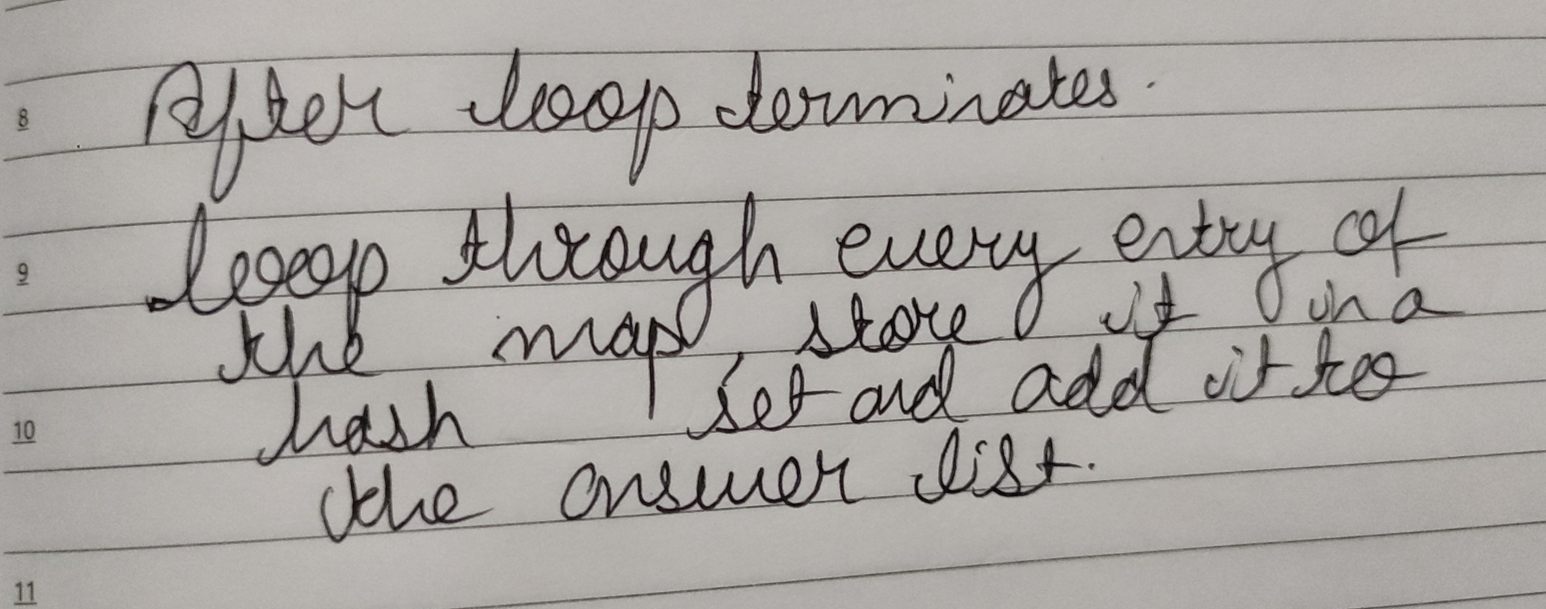 8 After loop terminates.
9 loop through every entry of
the map, store it in a
10 hash set and add it to
the answer list.
11